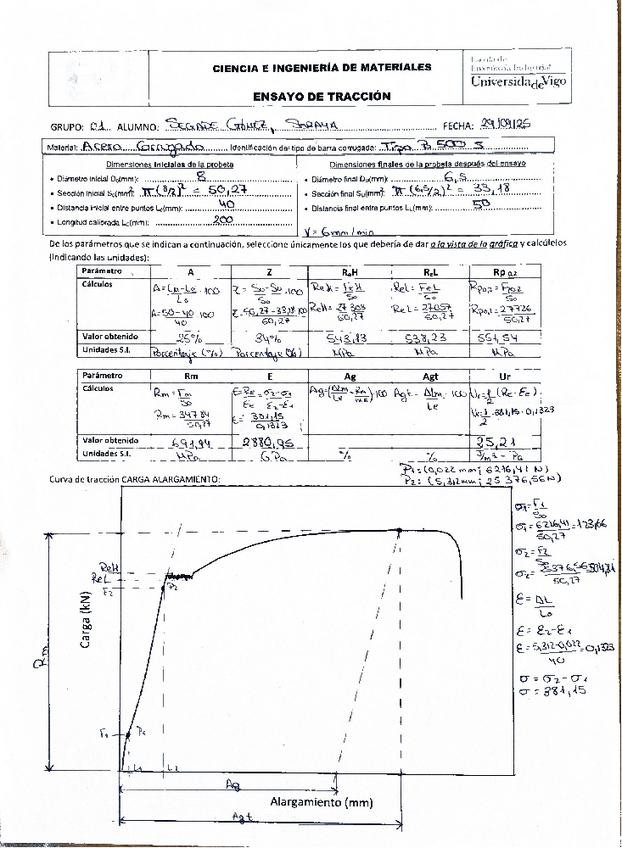 CIENCIA E INGENIERÍA DE MATERIALES
ENSAYO DE TRACCIÓN
Escuela de
Enxeñería Industrial
Universidade de Vigo
GRUPO: 01 ALUMNO: SEGADE GÓMEZ, SORAYA FECHA: 29/09/25
Material: Acero Corrugado Identificación del tipo de barra corrugado: Tipo B 500 S
Dimensiones iniciales de la probeta
• Diámetro inicial D₀(mm): 8
• Sección inicial S₀(mm)²: π(8/2)² = 50,27
• Distancia inicial entre puntos L₀(mm): 40
• Longitud calibrada Lc(mm): 200
Dimensiones finales de la probeta después del ensayo
• Diámetro final D₀(mm): 6,5
• Sección final S₀(mm): π (6,5/2)² = 33,18
• Distancia final entre puntos L₀(mm): 50
V = 6mm/min
De los parámetros que se indican a continuación, seleccione únicamente los que debería de dar a la vista de la gráfica y calcúlelos
(indicando las unidades):
Parámetro A Z ReH ReL Rp0,2
Cálculos
A = Lu-L₀/L₀ · 100
A = 50-40/40 · 100
Z = S₀-Su/S₀ · 100
Z = 50,27-33,18/50,27 · 100
ReH = FeH/S₀
ReH = 27303/50,27
ReL = FeL/S₀
ReL = 27057/50,27
Rp0,2 = Fp0,2/S₀
Rp0,2 = 27726/50,27
Valor obtenido 25% 34% 543,13 538,23 551,54
Unidades S.I. Porcentaje (%) Porcentaje (%) MPa MPa MPa
Parámetro Rm E Ag Agt Ur
Cálculos
Rm = Fm/S₀
Rm = 34784/50,27
E = σ2-σ1/ε2-ε1
E = 381,15/0,1323
Agt = ΔLm/Le · 100
Ur = 1/2 · 381,15 · 0,1323
Valor obtenido 691,94 2880,95 25,21
Unidades S.I. MPa GPa % % J/m³ - Pa
P1: (0,022 mm; 6216,41 N)
P2: (5,312 mm; 25 376,56 N)
Curva de tracción CARGA ALARGAMIENTO:
σ1 = F1/S₀
σ1 = 6216,41/50,27 = 123,66
σ2 = F2/S₀
ε = ΔL/L₀
ε = ε2-ε1
ε = 5,312-0,022/40 = 0,1323
σ = σ2 - σ1
σ = 381,15
ReH
ReL
F2
P2
Carga (kN)
Rm
F1
P1
L1
L2
Ag
Alargamiento (mm)
Agt